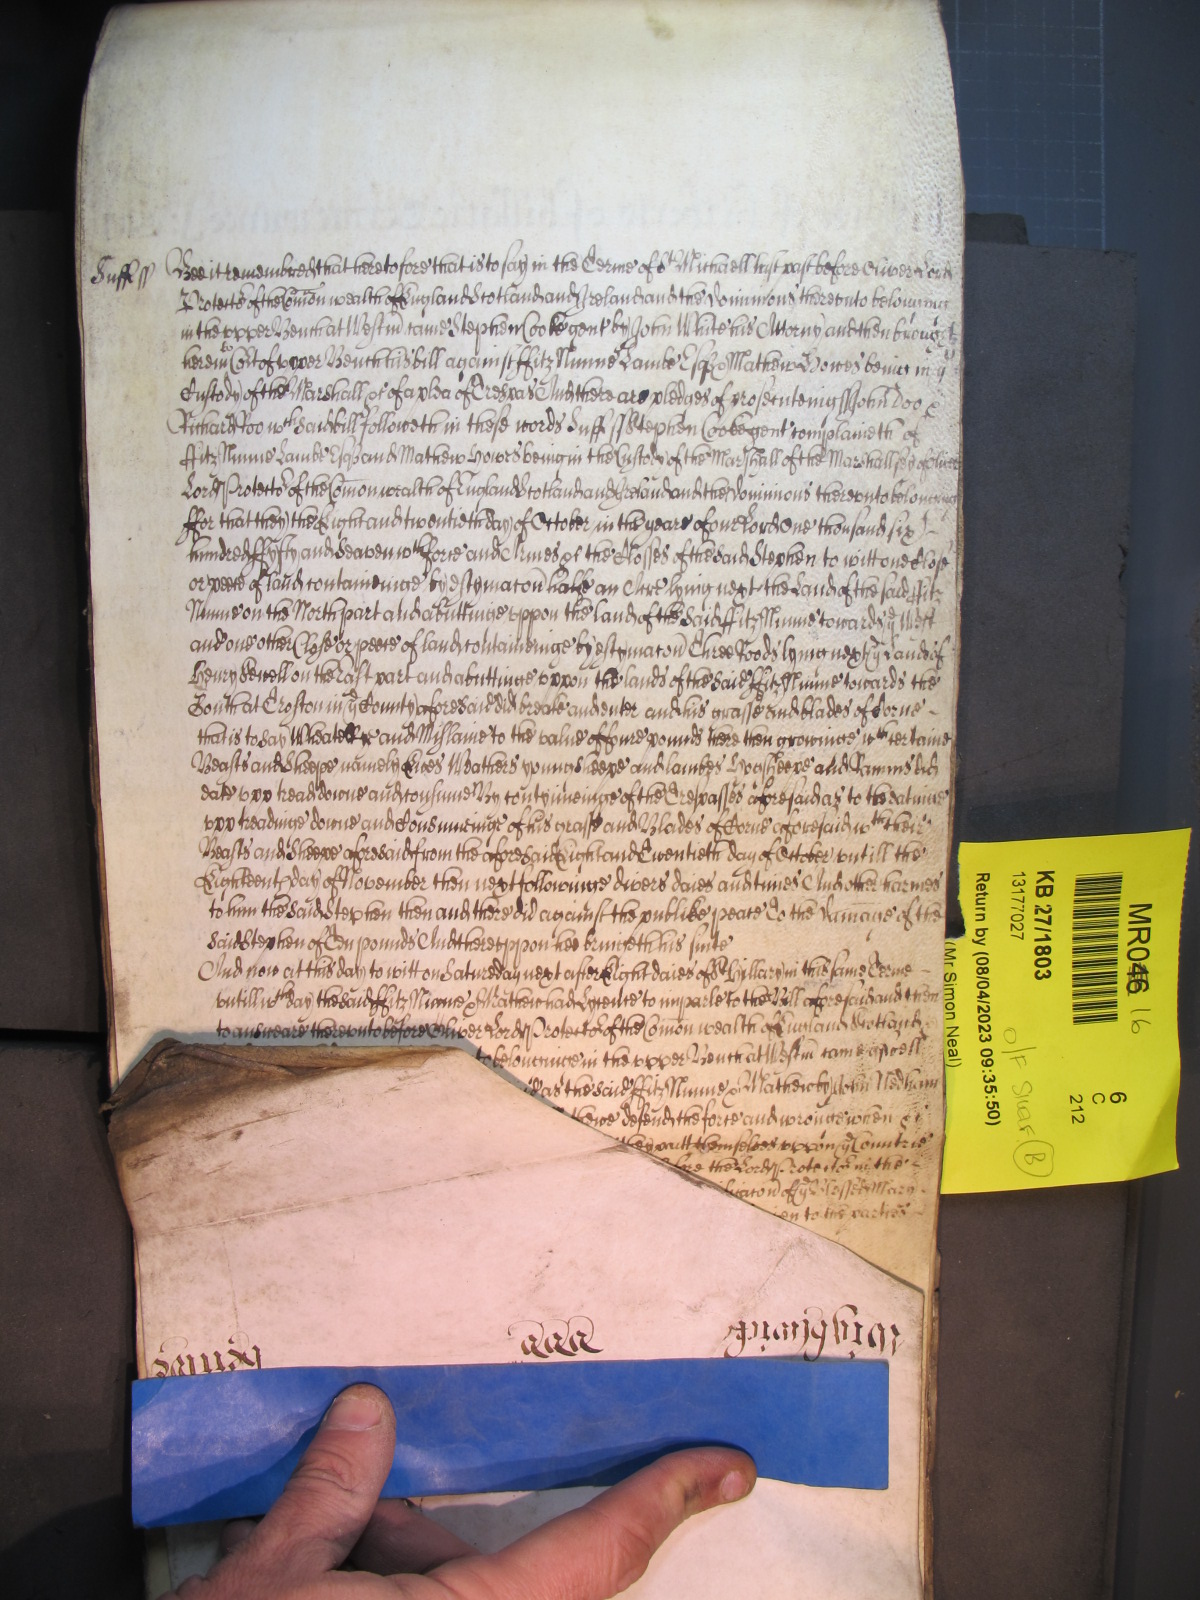 Suff ss Bee it remembred that heretofore that is to say in the Terme of St Michaell last past before Oliver Lord
Protector of the Comon wealth of England Scotland and Ireland and the Dominions thereunto belonging
in the upper Bench at Westmr came Stephen Cooke gent by John White his Attorny and then brought
here in to Cort of upper Bench his bill against ffitz Nunne Lambe Esqr & Mathew Howes being in ye
Custody of the Marshall &c of a plea of Trespas And there are pledges of prosecuteing ss John Doo &
Richard Roo wch said bill followeth in these words Suff ss Stephen Cooke gent complaineth of
ffitz Nunne Lambe Esqr and Mathew Howes being in the Custody of the Marshall of the Marshallsey of Oliver
Lord Protector of the Comon wealth of England Scotland and Ireland and the Dominions thereunto belonging
ffor that they the Eight and twentieth day of October in the yeare of our Lord One thousand six
hundred ffyfty and Seaven wth force and Armes &c the Closses of the said Stephen to witt one Close
or peece of land conteineinge by estymacon halfe an Acre lying next the Land of the said ffitz
Nunne on the North part and abuttinge uppon the land of the said ffitz Nunne towards ye West
and one other Close or peece of land conteineinge by estymacon Three Roods lying next ye Land of
Henry Sewell on the East part and abuttinge uppon the lands of the said ffitz Nunne towards the
South at Croston in ye County aforesaid did breake and enter and his grasse and blades of Corne
that is to say Wheate Rye and Mislaine to the value of foure pounds there then growinge wth certaine
Beasts and Sheepe namely Ewes Wathers young sheepe and lambes Hogsheepe and Ramms did
eate upp tread downe and consume By contynueinge of the Trespasses aforesaid as to the eatinge
upp treadinge downe and Consumeinge of his grasse and Blades of Corne aforesaid wth their
Beasts and Sheepe aforesaid from the aforesaid Eight and Twentieth day of October untill the
Eighteenth day of November then next followinge divers daies and times And other harmes
to him the said Stephen then and there did against the publike peace To the damage of the
said Stephen of Ten pounds And thereuppon hee bringeth his suite
And now at this day to witt on Saturday next after Eight daies of St Hillary in this same Terme
untill wch day the said ffitz Nunne & Mathew had Lycence to imparle to the Bill aforesaid and then
to answeare thereunto before Oliver Lord Protector of the Comon wealth of England Scotland
to belonginge in the upper Bench at Westmr came aswell
as the said ffitz Nunne & Mathew by John Nedham
defend the force and wronge when &c
they putt themselves uppon ye Countrie
the Lord Protector in the
of ye Blessed Mary
to the parties
MR046 16
KB 27/1803
13177027
Return by (08/04/2023 09:35:50)
(Mr Simon Neal)
6
C
212
B